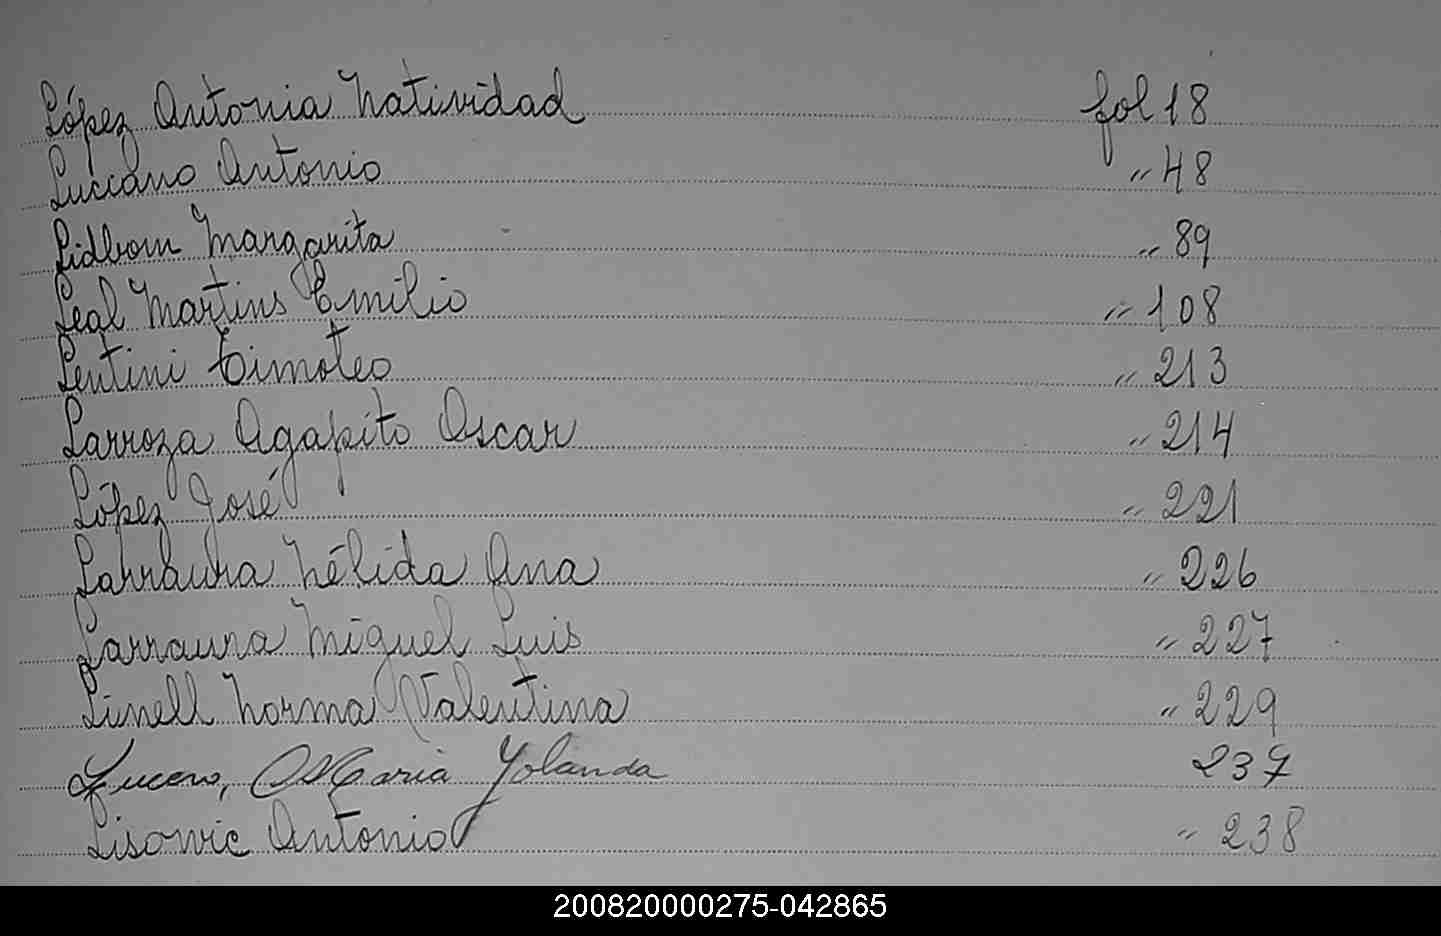 López Antonia Natividad fol 18
Luccano Antonio " 48
Lidbom Margarita " 89
Leal Martins Emilio " 108
Lentini Timoteo " 213
Larroza Agapito Oscar " 214
López José " 221
Larraura Nélida Ana " 226
Larraura Miguel Luis " 227
Linell Norma Valentina " 229
Lucero, María Yolanda 237
Lisowic Antonio " 238
200820000275-042865